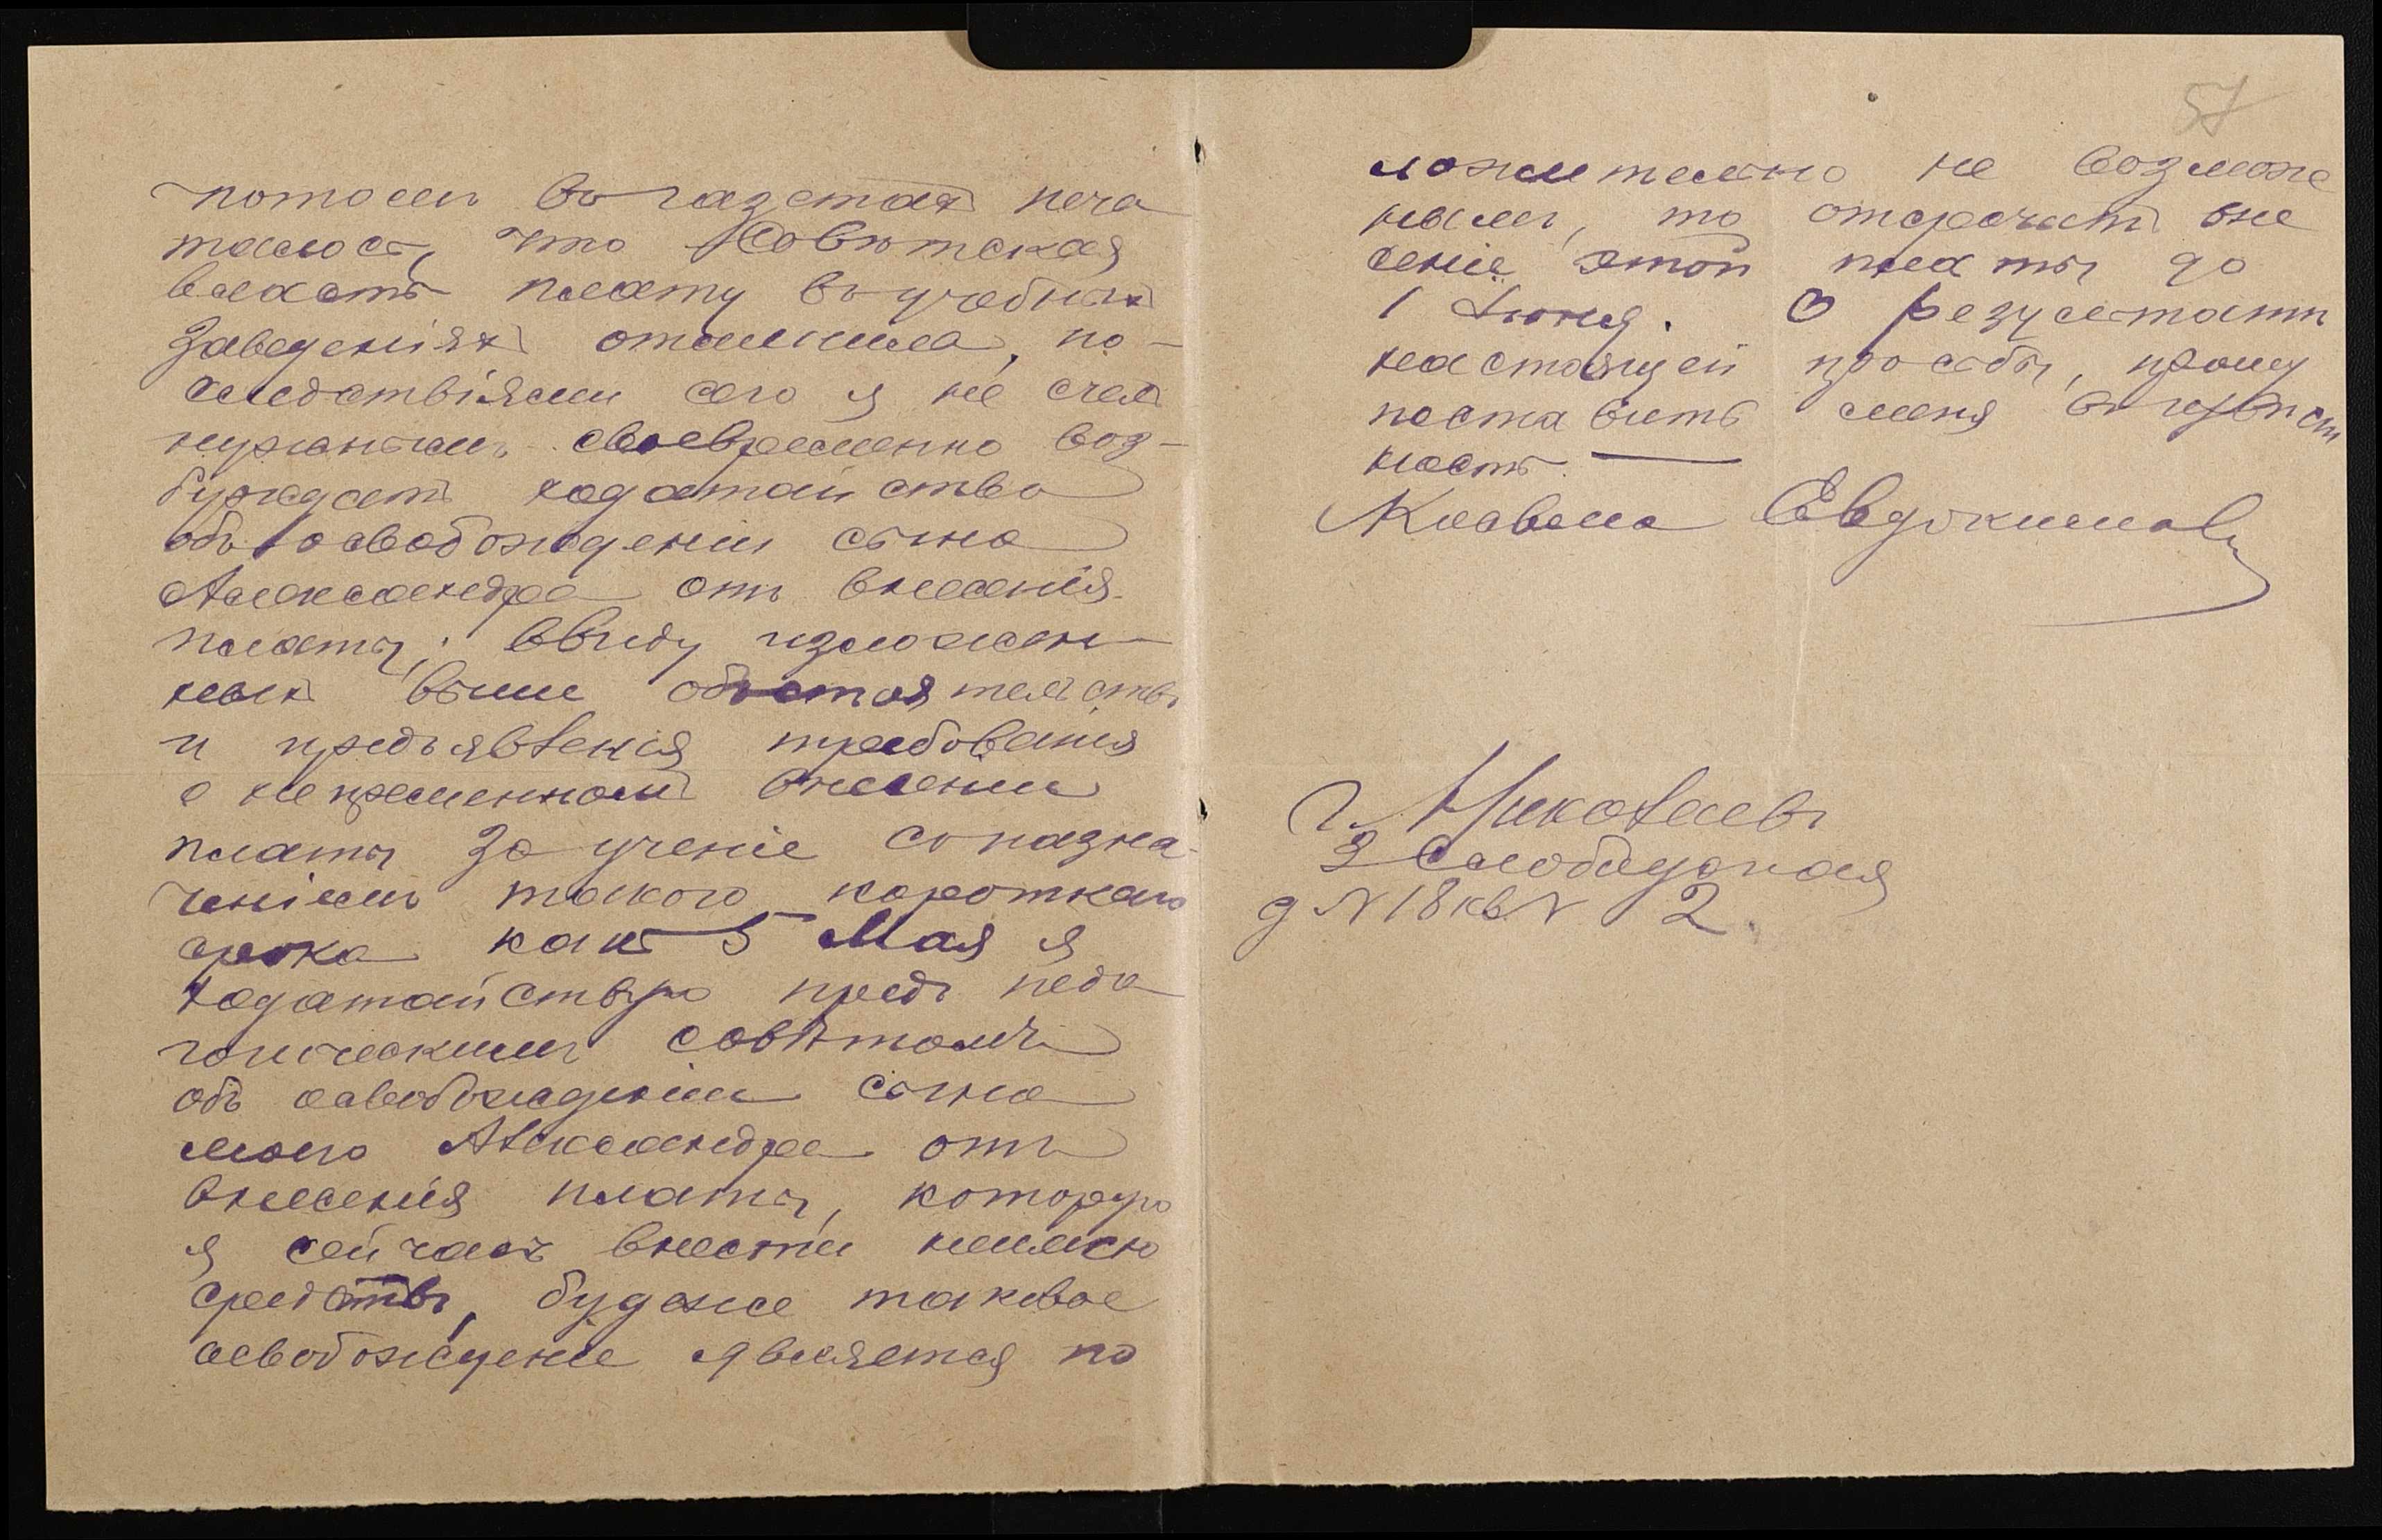 потомъ въ газетахъ печа
талось, что Совѣтская
власть плату въ учебныхъ
заведеніяхъ отмѣнила, по-
слѣдствіями сего я не счелъ
нужнымъ своевременно воз-
буждать ходатайство
объ освобожденіи сына
Александра отъ внесенія
платы; ввиду изложен
ныхъ выше обстоятельствъ
и предъявленія требованія
о непременномъ внесеніи
платы за ученіе съ назна-
ченіемъ такого короткаго
срока какъ 5 Мая я
ходатайствую предъ педа
гогическимъ совѣтомъ
объ освобожденіи сына
моего Александра отъ
внесенія платы, которую
я сейчасъ внести неимѣю
средствъ, будеже таковое
освобожденіе является по
57
ложительно не возмож
нымъ, то отсрочить вне
сеніе этой платы до
1 Іюня. О результатѣ
настоящей просьбы, прошу
поставить меня въ извѣст
ность.
Клавдіа Евдокимовъ
г. Николаевъ
3 Слободская
д № 18 кв № 2.